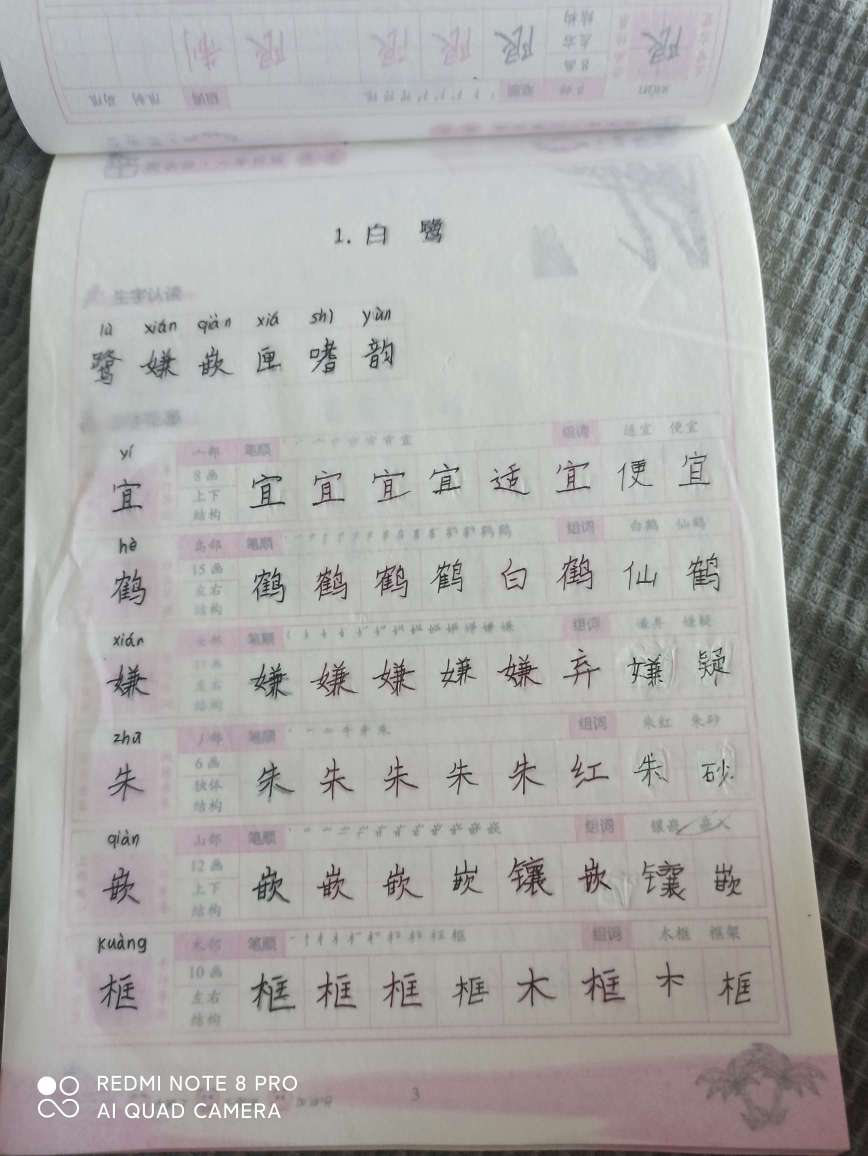 1. 白 鹭
生字认读
lù xián qiàn xiá shì yùn
鹭 嫌 嵌 匣 嗜 韵
yí 宀部 笔顺 组词 适宜 便宜
宜 8画 上下 结构 宜 宜 宜 宜 适 宜 便 宜
hè 鸟部 笔顺 组词 白鹤 仙鹤
鹤 15画 左右 结构 鹤 鹤 鹤 鹤 白 鹤 仙 鹤
xián 笔顺 组词 嫌弃 嫌疑
嫌 左右 结构 嫌 嫌 嫌 嫌 嫌 弃 嫌 疑
zhū 丿部 笔顺 组词 朱红 朱砂
朱 6画 独体 结构 朱 朱 朱 朱 朱 红 朱 砂
qiàn 山部 笔顺 组词
嵌 12画 上下 结构 嵌 嵌 嵌 嵌 镶 嵌 镶 嵌
kuàng 木部 笔顺 组词 木框 框架
框 10画 左右 结构 框 框 框 框 木 框 木 框
3
REDMI NOTE 8 PRO
AI QUAD CAMERA